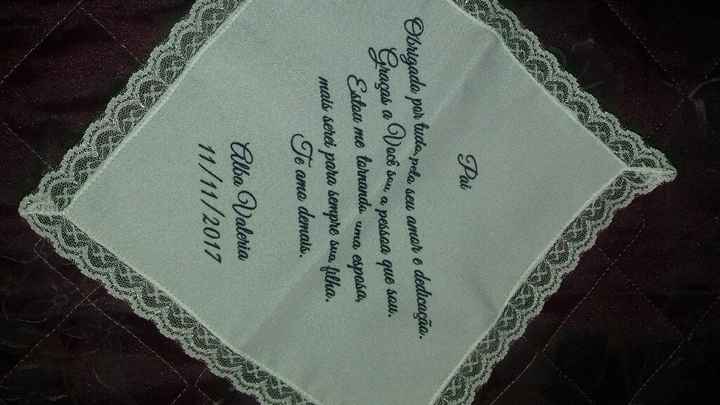 Pai
Obrigada por tudo, pelo seu amor e dedicação.
Graças a Você sou a pessoa que sou.
Estou me tornando uma esposa,
mais serei para sempre sua filha.
Te amo demais.
Alba Valeria
11/11/2017